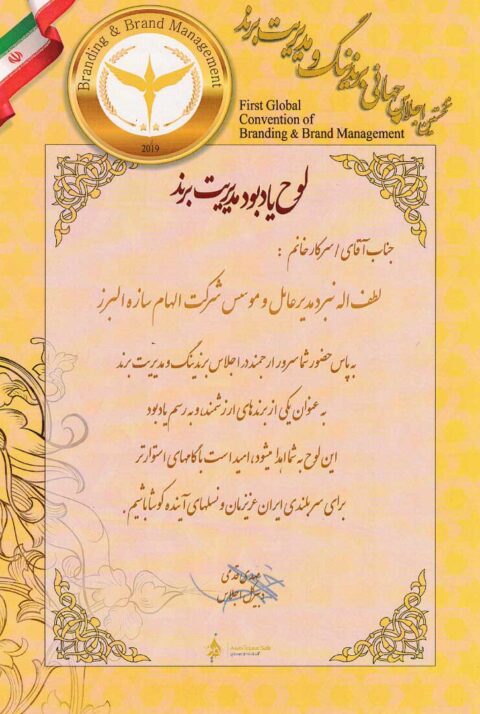 Branding & Brand Management
2019
نخستین اجلاس جهانی برندینگ و مدیریت برند
First Global
Convention of
Branding & Brand Management
لوح یادبود مدیریت برند
جناب آقای / سرکار خانم :
لطف اله نبرد مدیر عامل و موسس شرکت الهام سازه البرز
به پاس حضور شما سرور ارجمند در اجلاس برندینگ و مدیریت برند
به عنوان یکی از برندهای ارزشمند، و به رسم یادبود
این لوح به شما اهدا میشود، امید است با گامهای استوارتر
برای سربلندی ایران عزیزمان و نسلهای آینده کوشا باشیم.
مهدی
دبیر کل اجلاس